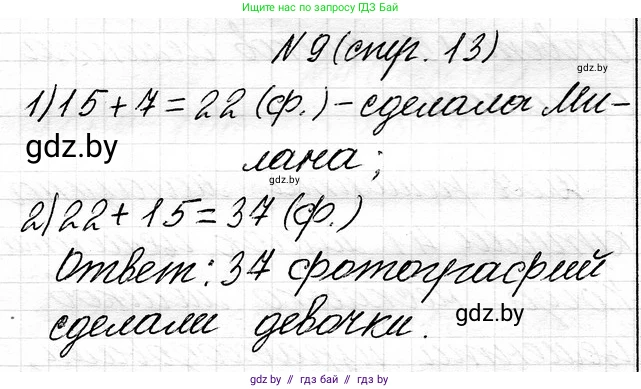 Ищите нас по запросу ГДЗ Бай
N 9 (стр. 13)
gdz.by
1) 15 + 7 = 22 (ф.) - сделала Ми-
gdz.by
лана;
gdz.by
2) 22 + 15 = 37 (ф.)
Ответ: 37 фотографий
сделали девочки.
gdz.by
gdz.by // гдз бай // gdz.by